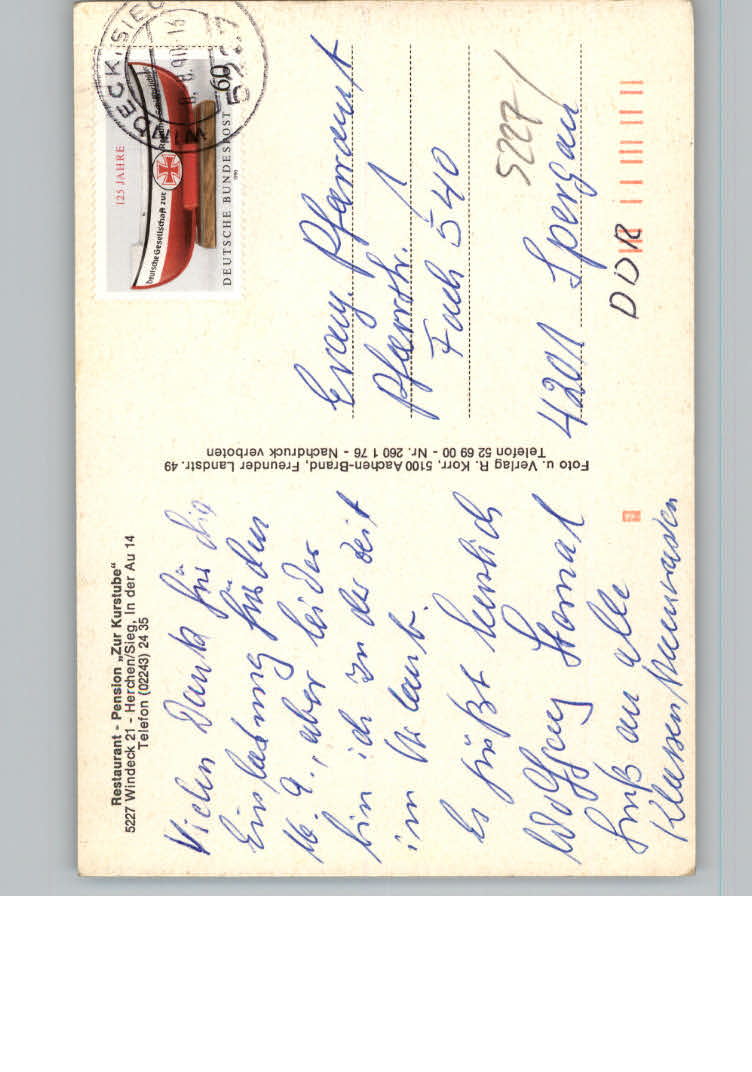 Restaurant - Pension „Zur Kurstube“
5227 Windeck 21 - Herchen/Sieg, In der Au 14
Telefon (02243) 24 35
Vielen Dank für die
Einladung für den
16. 9., aber leider
bin ich zu der Zeit
im Urlaub.
Es grüßt herzlich
Wolfgang
Gruß an alle
Klassenkameraden
Foto u. Verlag R. Korr, 5100 Aachen-Brand, Freunder Landstr. 49
Telefon 52 69 00 - Nr. 260 1 76 - Nachdruck verboten
125 JAHRE
Deutsche Gesellschaft zur
DEUTSCHE BUNDESPOST
60
1990
WINDECK, SIEG
5227
Evang. Pfarramt
Pfarrstr. 1
Fach 540
5227/
4201 Spergau
DDR